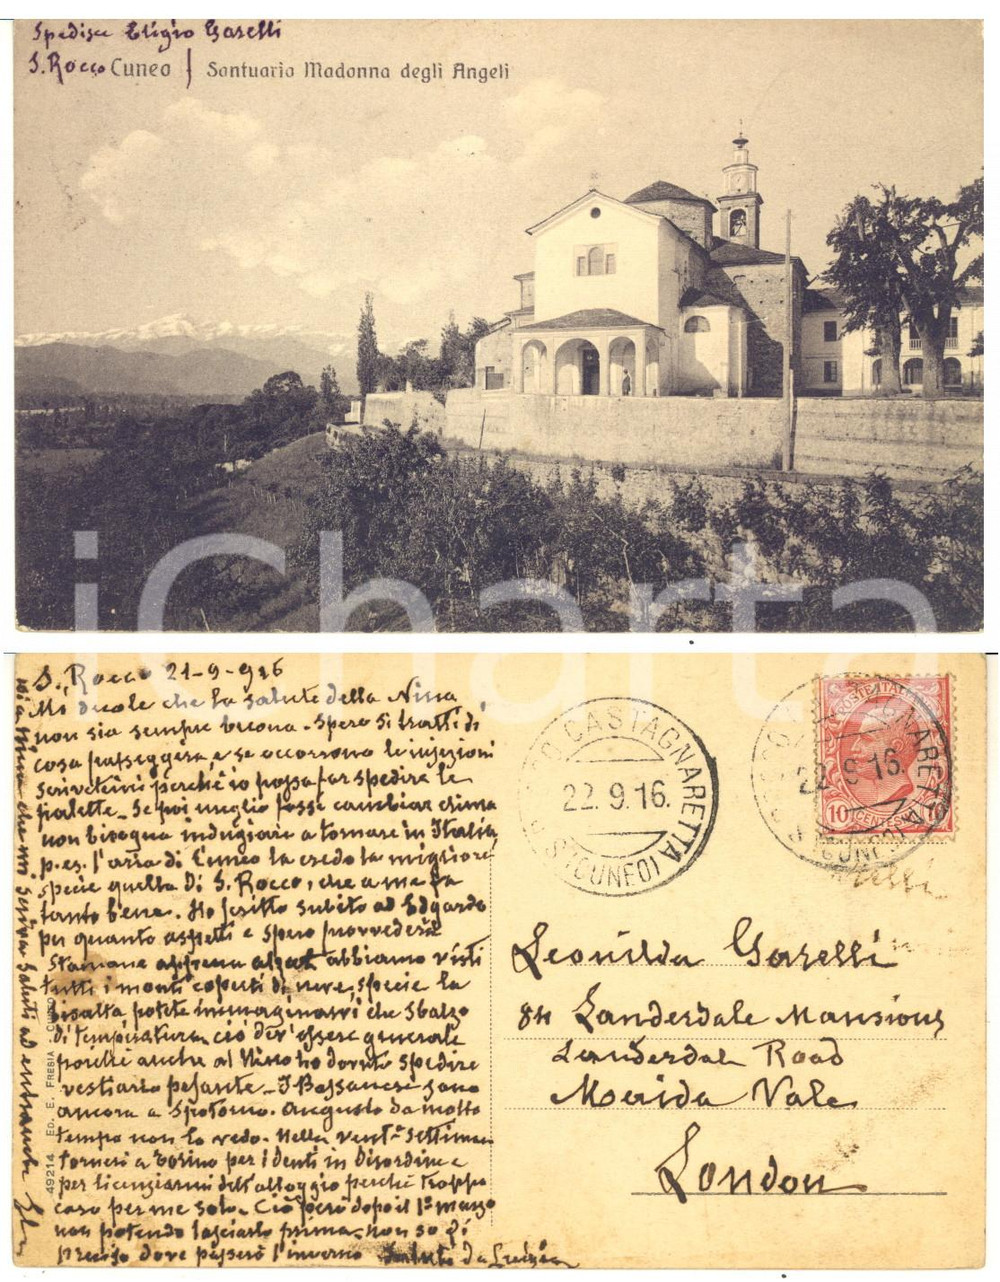 Spedisce Eligio Gaselli
S. Rocco Cuneo | Santuario Madonna degli Angeli
iCharta
S. Rocco 21-9-916
Mi duole che la salute della Nina
non sia sempre buona. Spero si tratti di
cosa passeggera e se occorrono le injezioni
scrivetemi perchè io possa far spedire le
fialette. Se poi meglio fosse cambiar clima
non bisogna indugiare a tornare in Italia,
p. es. l'aria di Cuneo la credo la migliore,
specie quella di S. Rocco, che a me fa
tanto bene. Ho scritto subito ad Edgardo
per quanto aspetti e spero provvederà
Stamane appena alzati abbiamo visti
tutti i monti coperti di neve, specie la
Bisalta potete immaginarvi che sbalzo
di temperatura, ciò dev'essere generale
poichè anche al Nino ho dovuto spedire
vestiario pesante. I Bassanesi sono
ancora a Spotorno. Augusto da molto
tempo non lo vedo. Nella vent.ª settimana
tornerò a Torino per i denti in disordine e
per licenziarmi dell'alloggio perchè troppo
caro per me solo. Ciò però dopo il 1º marzo
non potendo lasciarlo prima, non so di
preciso dove passerò l'inverno Saluti da
49214 ED. E. FRESIA - CUNEO
CASTAGNARETTA
22.9.16.
(CUNEO)
POSTE ITALIANE
CASTAGNARETTA
22.9.16.
(CUNEO)
10 CENTESIMI 10
Leonilda Gaselli
84 Landerdale Mansions
Landerdale Road
Merida Vale
London